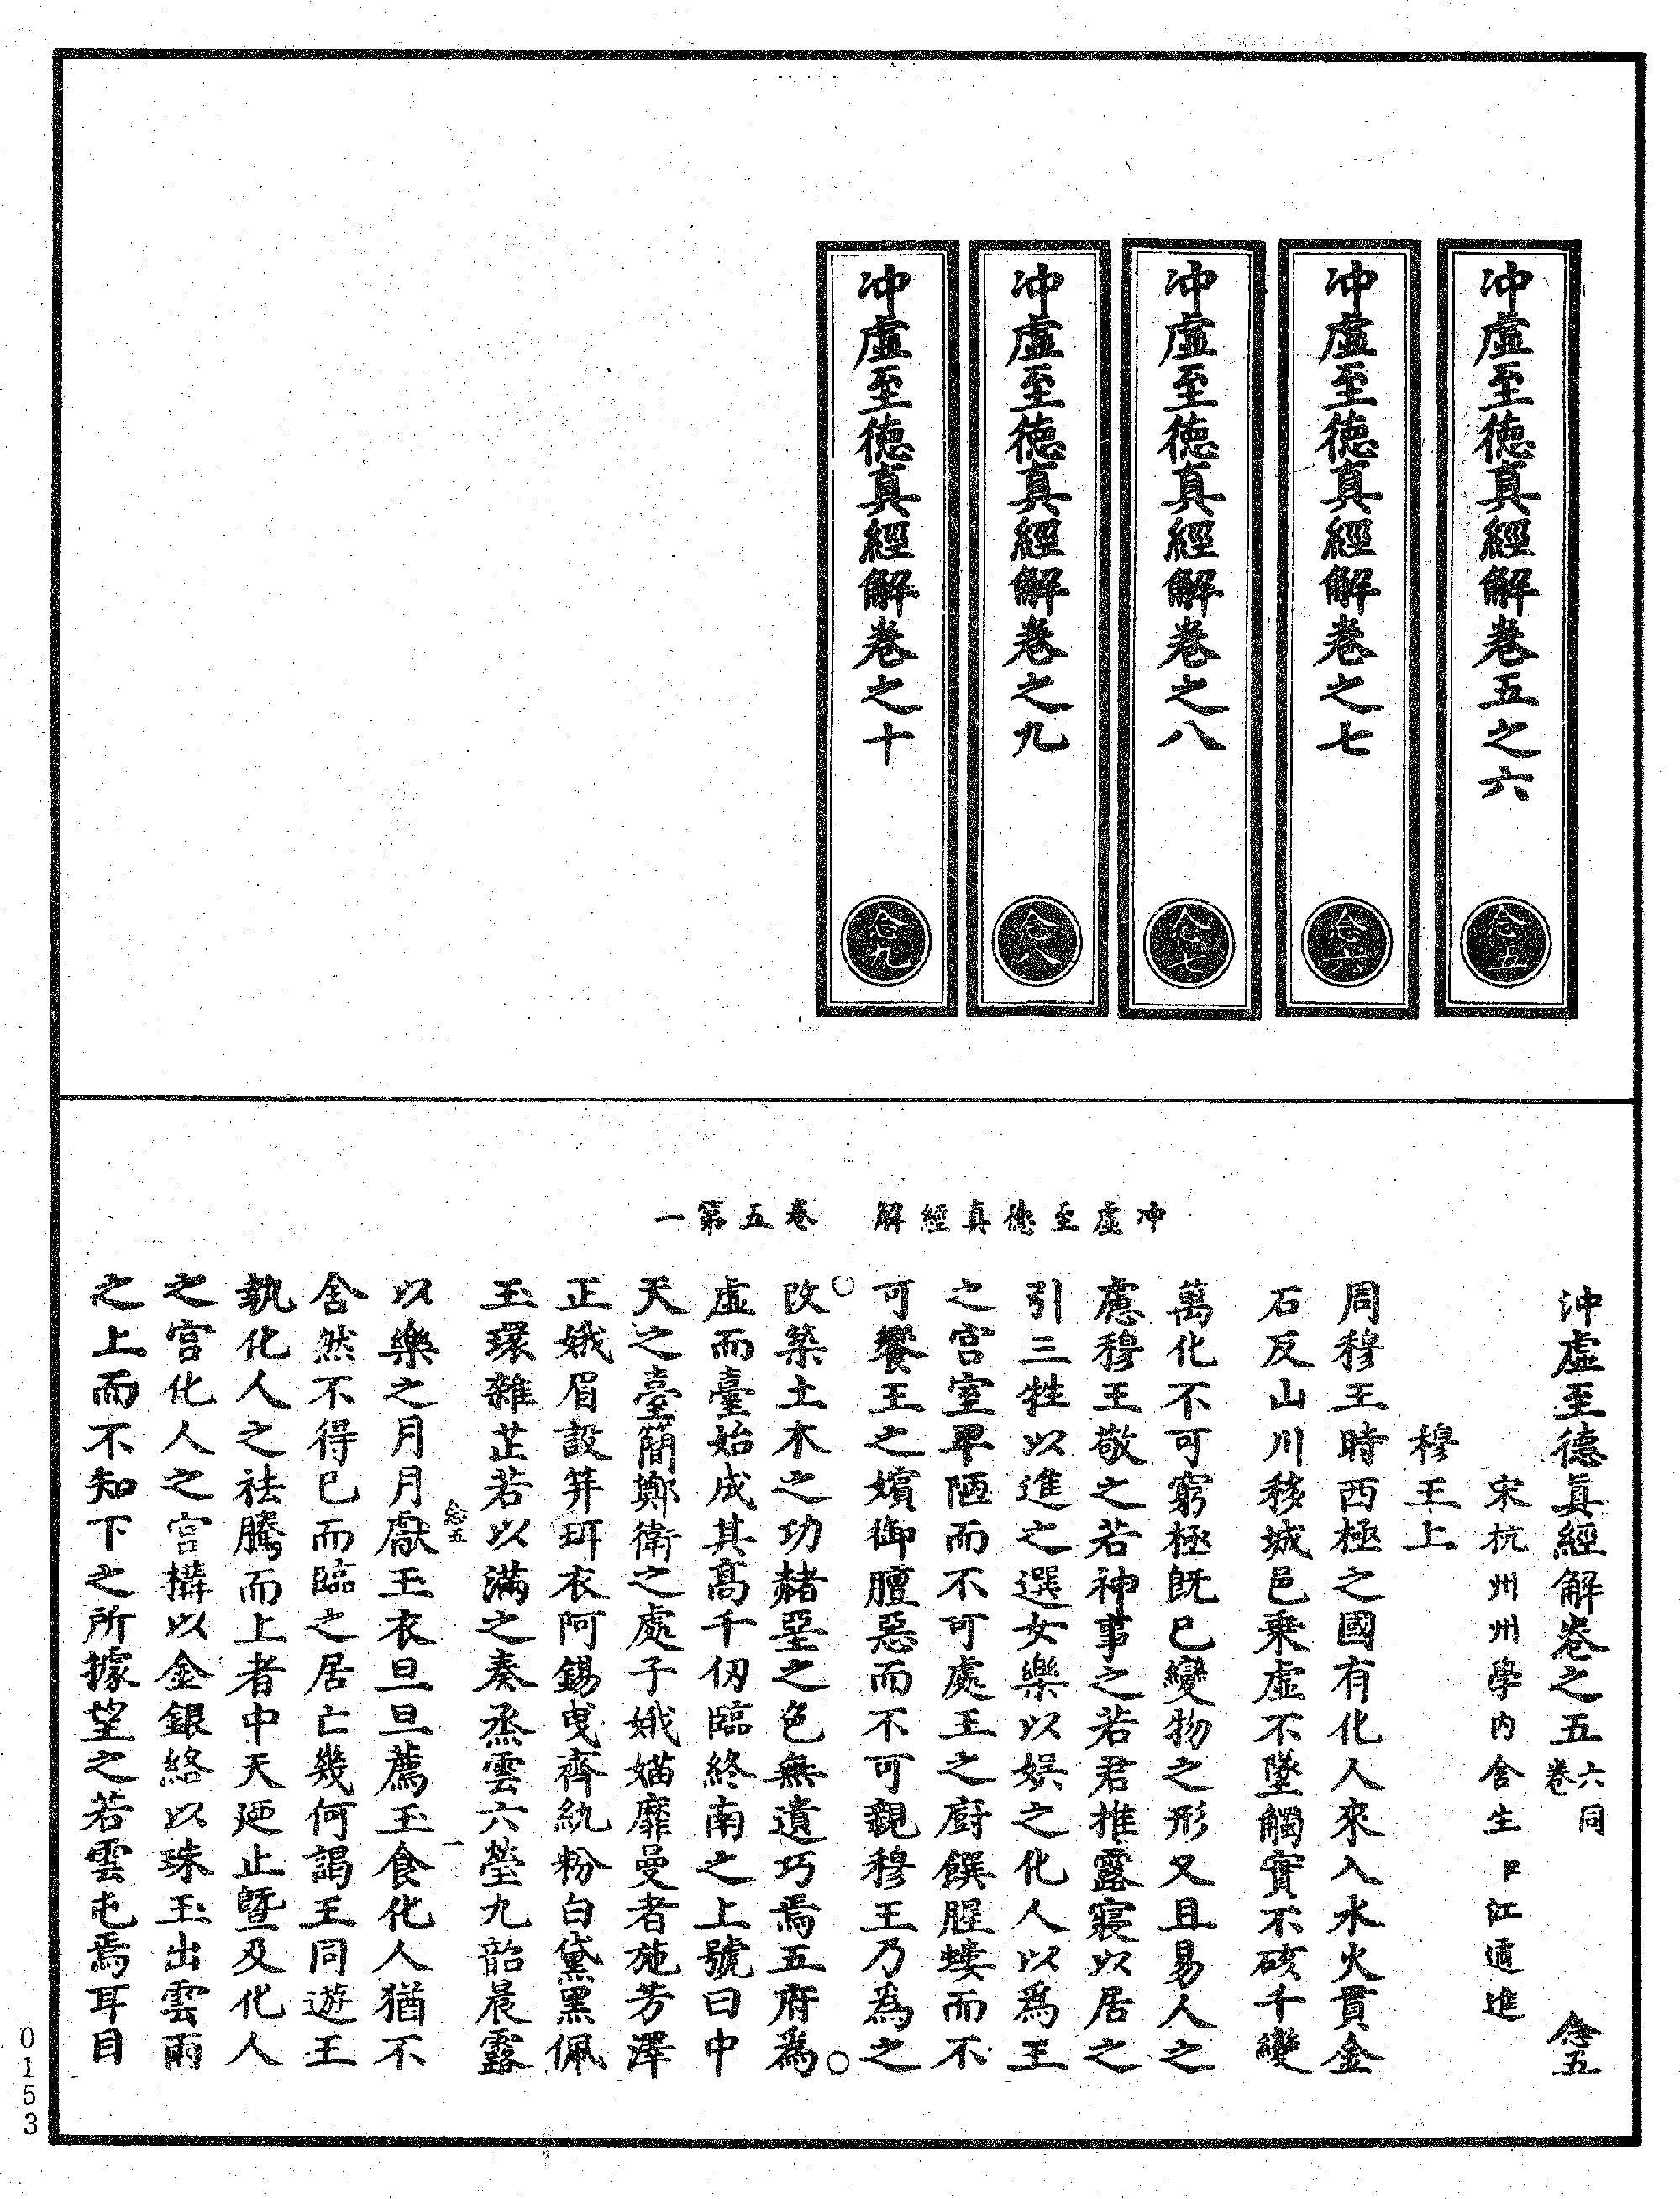 冲虛至德真經解卷五之六
念五
冲虛至德真經解卷之七
念六
冲虛至德真經解卷之八
念七
冲虛至德真經解卷之九
念八
冲虛至德真經解卷之十
念九
冲虛至德真經解 卷五第一
沖虛至德眞經解卷之五 六同卷 念五
宋杭州州學內舍生臣江遹進
穆王上
周穆王時西極之國有化人來入水火貫金
石反山川移城邑乗虛不墜觸實不硋千變
萬化不可窮極旣已變物之形又且易人之
慮穆王敬之若神事之若君推露寢以居之
引三牲以進之選女樂以娯之化人以爲王
之宮室卑陋而不可處王之廚饌腥螻而不
可饗王之嬪御膻惡而不可親穆王乃為之
攺築土木之功赭堊之色無遺巧焉五府爲
虛而臺始成其髙千仞臨終南之上號曰中
天之臺簡鄭衛之處子娥媌靡曼者施芳澤
正娥眉設笄珥衣阿錫曳齊紈粉白黛黑佩
玉環雜芷若以滿之奏烝雲六瑩九韶晨露
念五 一
以樂之月月獻玉衣旦旦薦玉食化人猶不
舍然不得已而臨之居亡幾何謁王同遊王
執化人之袪騰而上者中天廼止曁及化人
之宮化人之宮構以金銀絡以珠玉出雲雨
之上而不知下之所據望之若雲屯焉耳目
0153